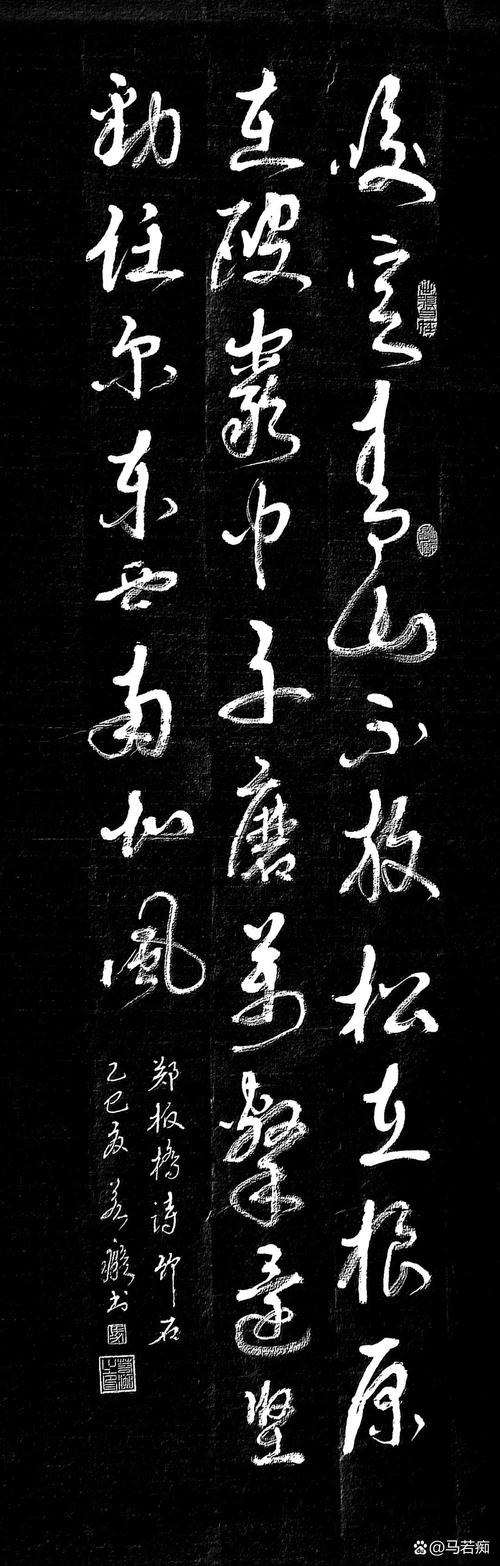 咬定青山不放松立根原
在破巖中千磨萬擊還坚
勁任尔东西南北風
郑板橋诗竹石
乙巳夏若癡书
@马若痴